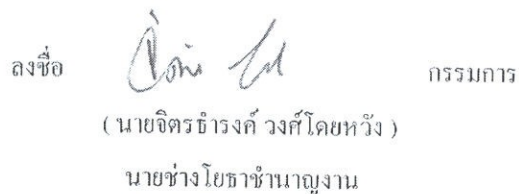 ลงชื่อ กรรมการ
( นายจิตรธำรงค์ วงศ์โดยหวัง )
นายช่างโยธาชำนาญงาน